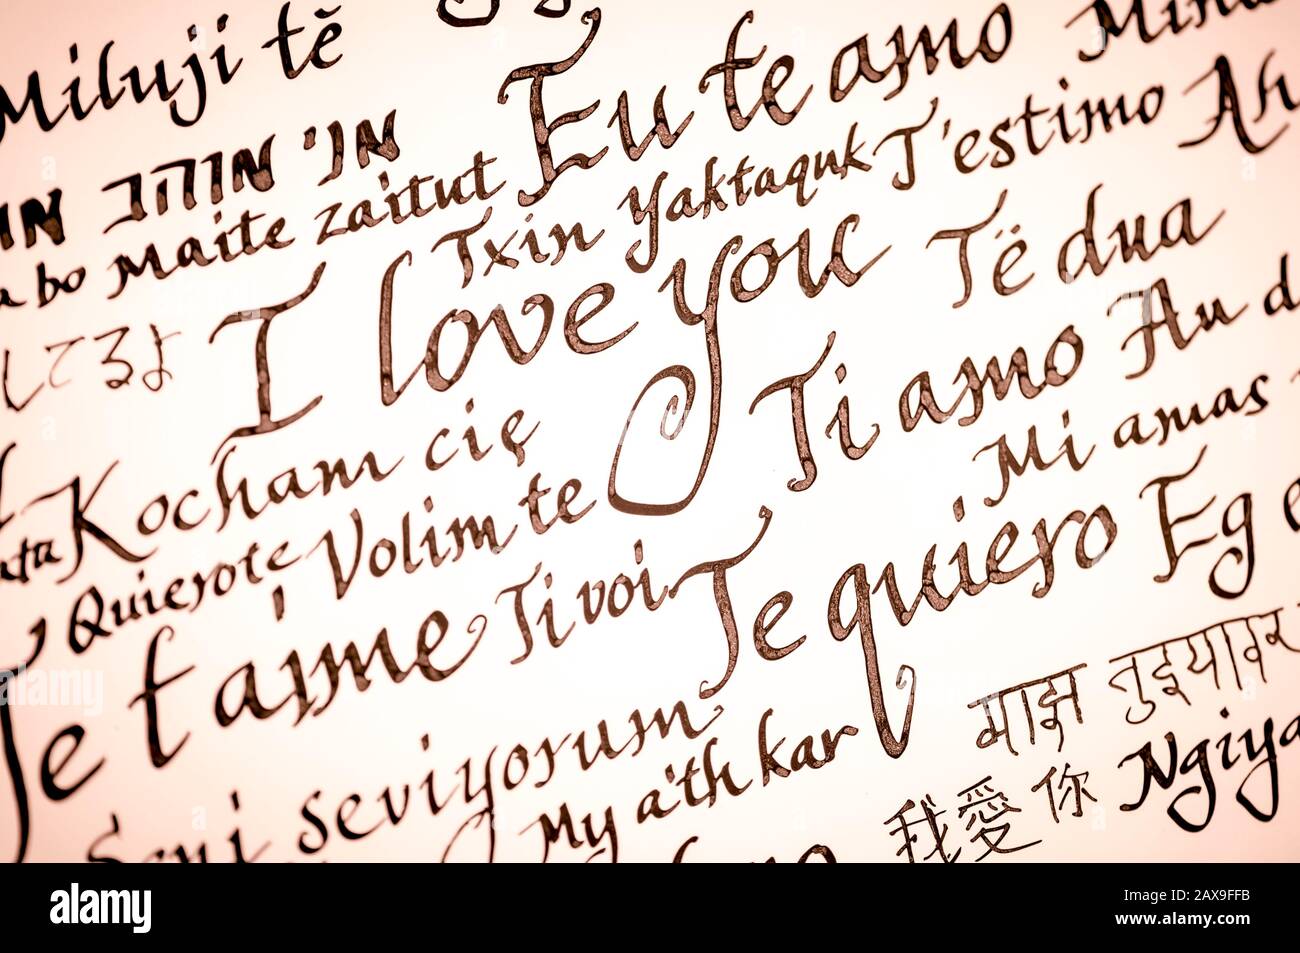 Miluji tě
Eu te amo
אני אוהב
Maite zaitut
Txin yaktaquk
T'estimo
bo
I love you
Të dua
してるよ
Kocham cię
Ti amo
Mi amas
Quierote
Volim te
Te quiero
Eg
Je t'aime
Ti voi
Seni seviyorum
My a'th kar
माझ तुझ्यावर
我愛你
alamy
Image ID: 2AX9FFB
www.alamy.com